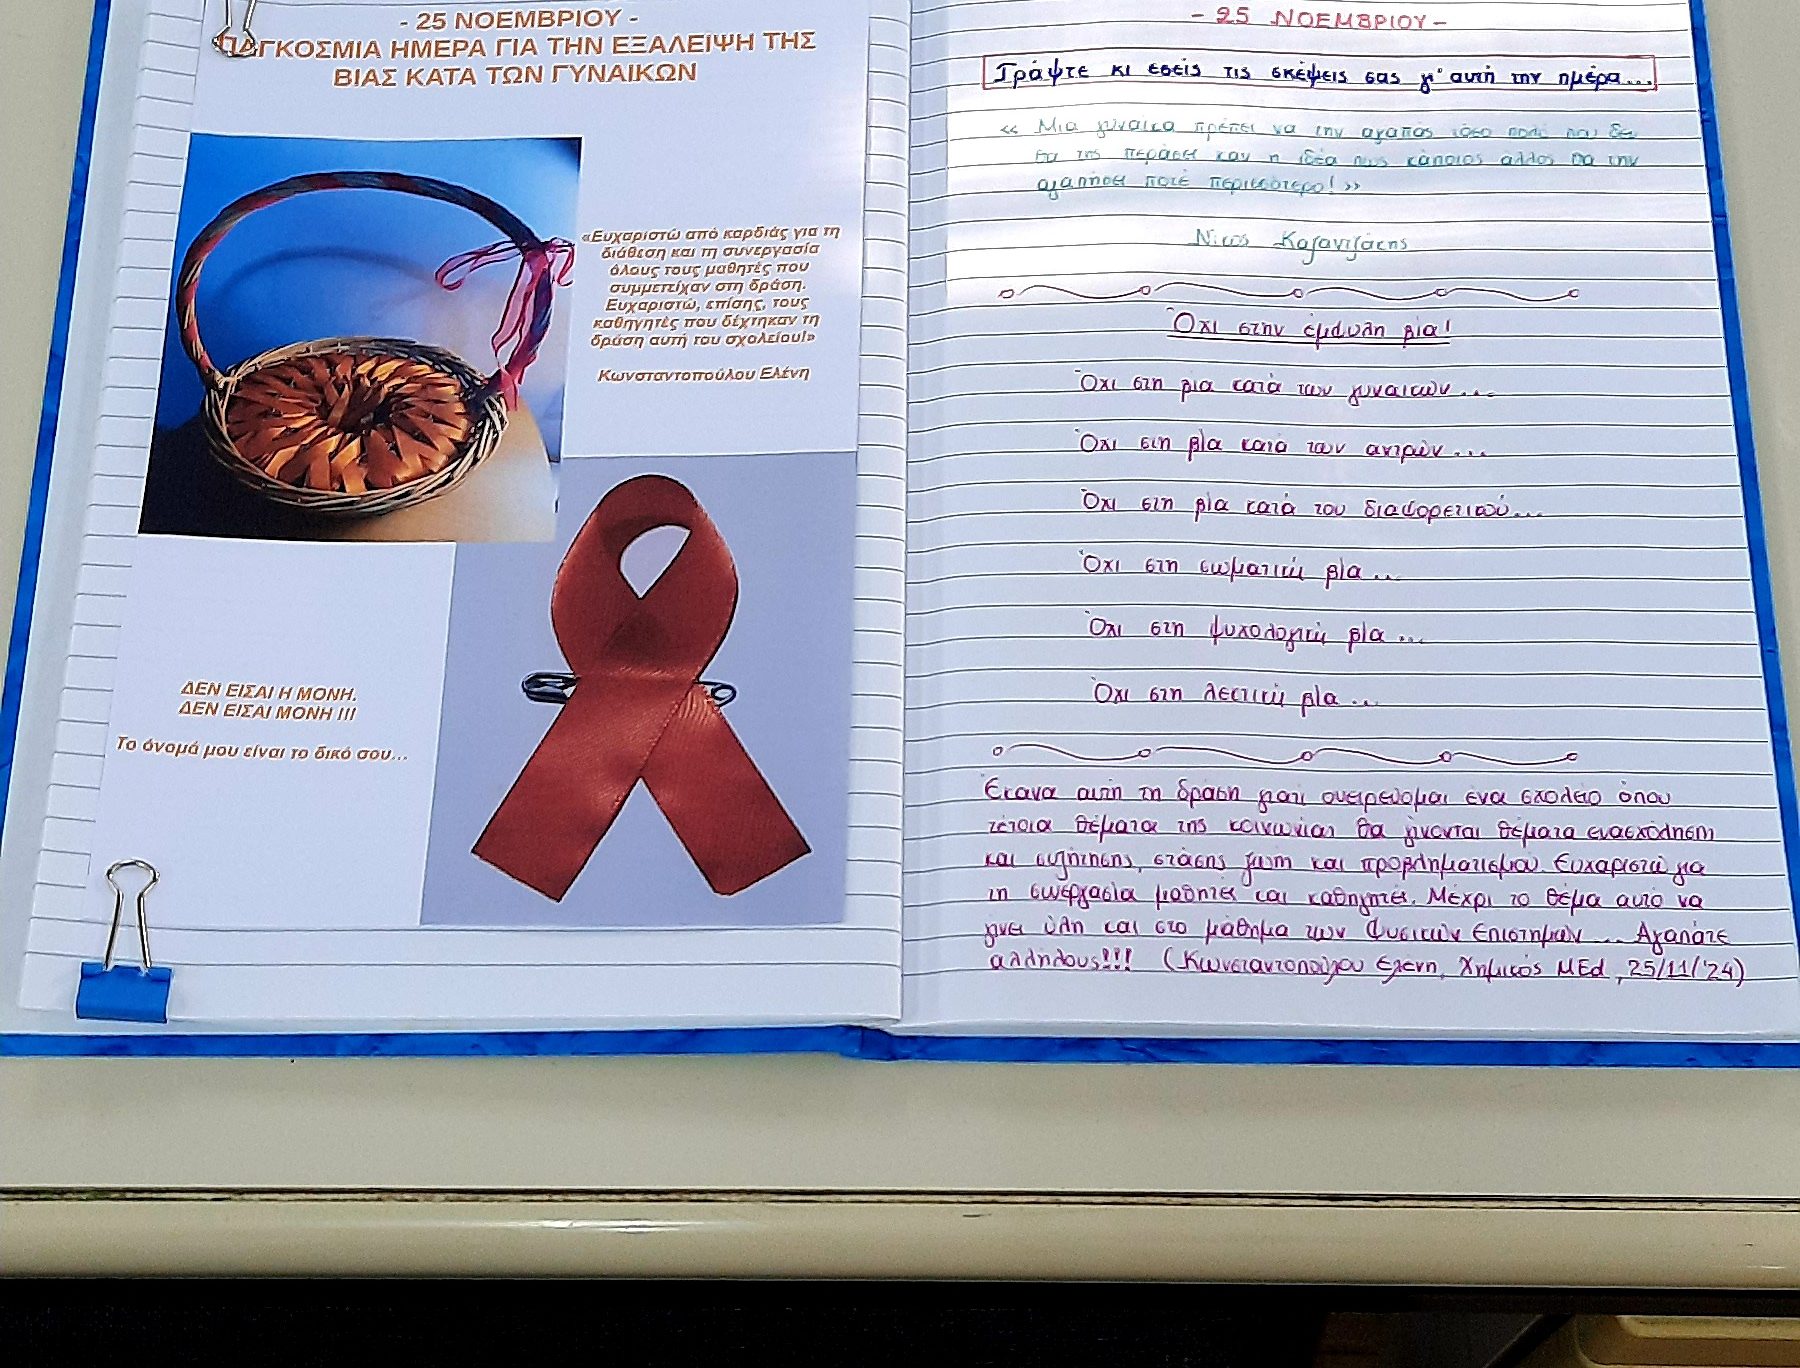 - 25 ΝΟΕΜΒΡΙΟΥ -
ΠΑΓΚΟΣΜΙΑ ΗΜΕΡΑ ΓΙΑ ΤΗΝ ΕΞΑΛΕΙΨΗ ΤΗΣ
ΒΙΑΣ ΚΑΤΑ ΤΩΝ ΓΥΝΑΙΚΩΝ
«Ευχαριστώ από καρδιάς για τη
διάθεση και τη συνεργασία
όλους τους μαθητές που
συμμετείχαν στη δράση.
Ευχαριστώ, επίσης, τους
καθηγητές που δέχτηκαν τη
δράση αυτή του σχολείου!»
Κωνσταντοπούλου Ελένη
ΔΕΝ ΕΙΣΑΙ Η ΜΟΝΗ.
ΔΕΝ ΕΙΣΑΙ ΜΟΝΗ !!!
Το όνομά μου είναι το δικό σου...
- 25 ΝΟΕΜΒΡΙΟΥ -
Γράψτε κι εσείς τις σκέψεις σας γι' αυτή την ημέρα...
«Μια γυναίκα πρέπει να την αγαπάς τόσο πολύ που δε
θα της περάσει καν η ιδέα πως κάποιος άλλος θα την
αγαπήσει ποτέ περισσότερο!»
Νίκος Καζαντζάκης
Όχι στην έμφυλη βία!
Όχι στη βία κατά των γυναικών...
Όχι στη βία κατά των αντρών...
Όχι στη βία κατά του διαφορετικού...
Όχι στη σωματική βία...
Όχι στη ψυχολογική βία...
Όχι στη λεκτική βία...
Έκανα αυτή τη δράση γιατί ονειρεύομαι ένα σχολείο όπου
τέτοια θέματα της κοινωνίας θα γίνονται θέματα ενασχόλησης
και συζήτησης, στάσης ζωής και προβληματισμού. Ευχαριστώ για
τη συνεργασία μαθητές και καθηγητές. Μέχρι το θέμα αυτό να
γίνει ύλη και στο μάθημα των Φυσικών Επιστημών... Αγαπάτε
αλλήλους!!! (Κωνσταντοπούλου Ελένη, Χημικός MEd, 25/11/'24)